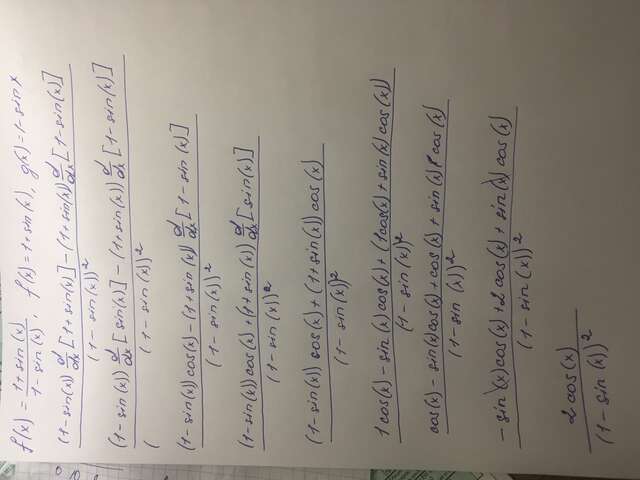 f(x) = \frac{1+sin(x)}{1-sin(x)}, f(x)=1+sin(x), g(x)=1-sin x
\frac{(1-sin(x)) \frac{d}{dx}[1+sin(x)]-(1+sin(x)) \frac{d}{dx}[1-sin(x)]}{(1-sin(x))^2}
\frac{(1-sin(x)) \frac{d}{dx}[sin(x)]-(1+sin(x)) \frac{d}{dx}[1-sin(x)]}{( (1-sin(x))^2}
\frac{(1-sin(x)) cos(x)-(1+sin(x)) \frac{d}{dx}[1-sin(x)]}{(1-sin(x))^2}
\frac{(1-sin(x)) cos(x)+(1+sin(x)) \frac{d}{dx}[sin(x)]}{(1-sin(x))^2}
\frac{(1-sin(x)) cos(x)+(1+sin(x)) cos(x)}{(1-sin(x))^2}
\frac{1cos(x)-sin(x)cos(x)+(1cos(x)+sin(x)cos(x))}{(1-sin(x))^2}
\frac{cos(x)-sin(x)cos(x)+cos(x)+sin(x)cos(x)}{(1-sin(x))^2}
\frac{-sin(x)cos(x)+2cos(x)+sin(x)cos(x)}{(1-sin(x))^2}
\frac{2cos(x)}{(1-sin(x))^2}